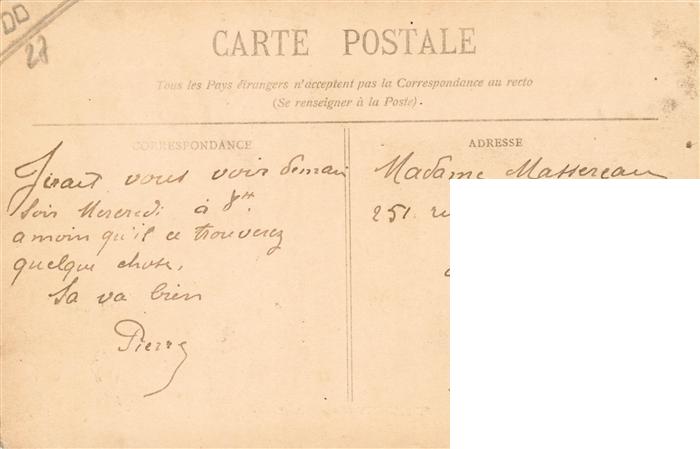 DD
27
CARTE POSTALE
Tous les Pays étrangers n'acceptent pas la Correspondance au recto
(Se renseigner à la Poste).
CORRESPONDANCE
Jirait vous voir demain
soir Mercredi à 8H.
a moin qu'il ce trouverez
quelque chose.
Sa va bien
Pierre
ADRESSE
Madame Massereau
251. ru